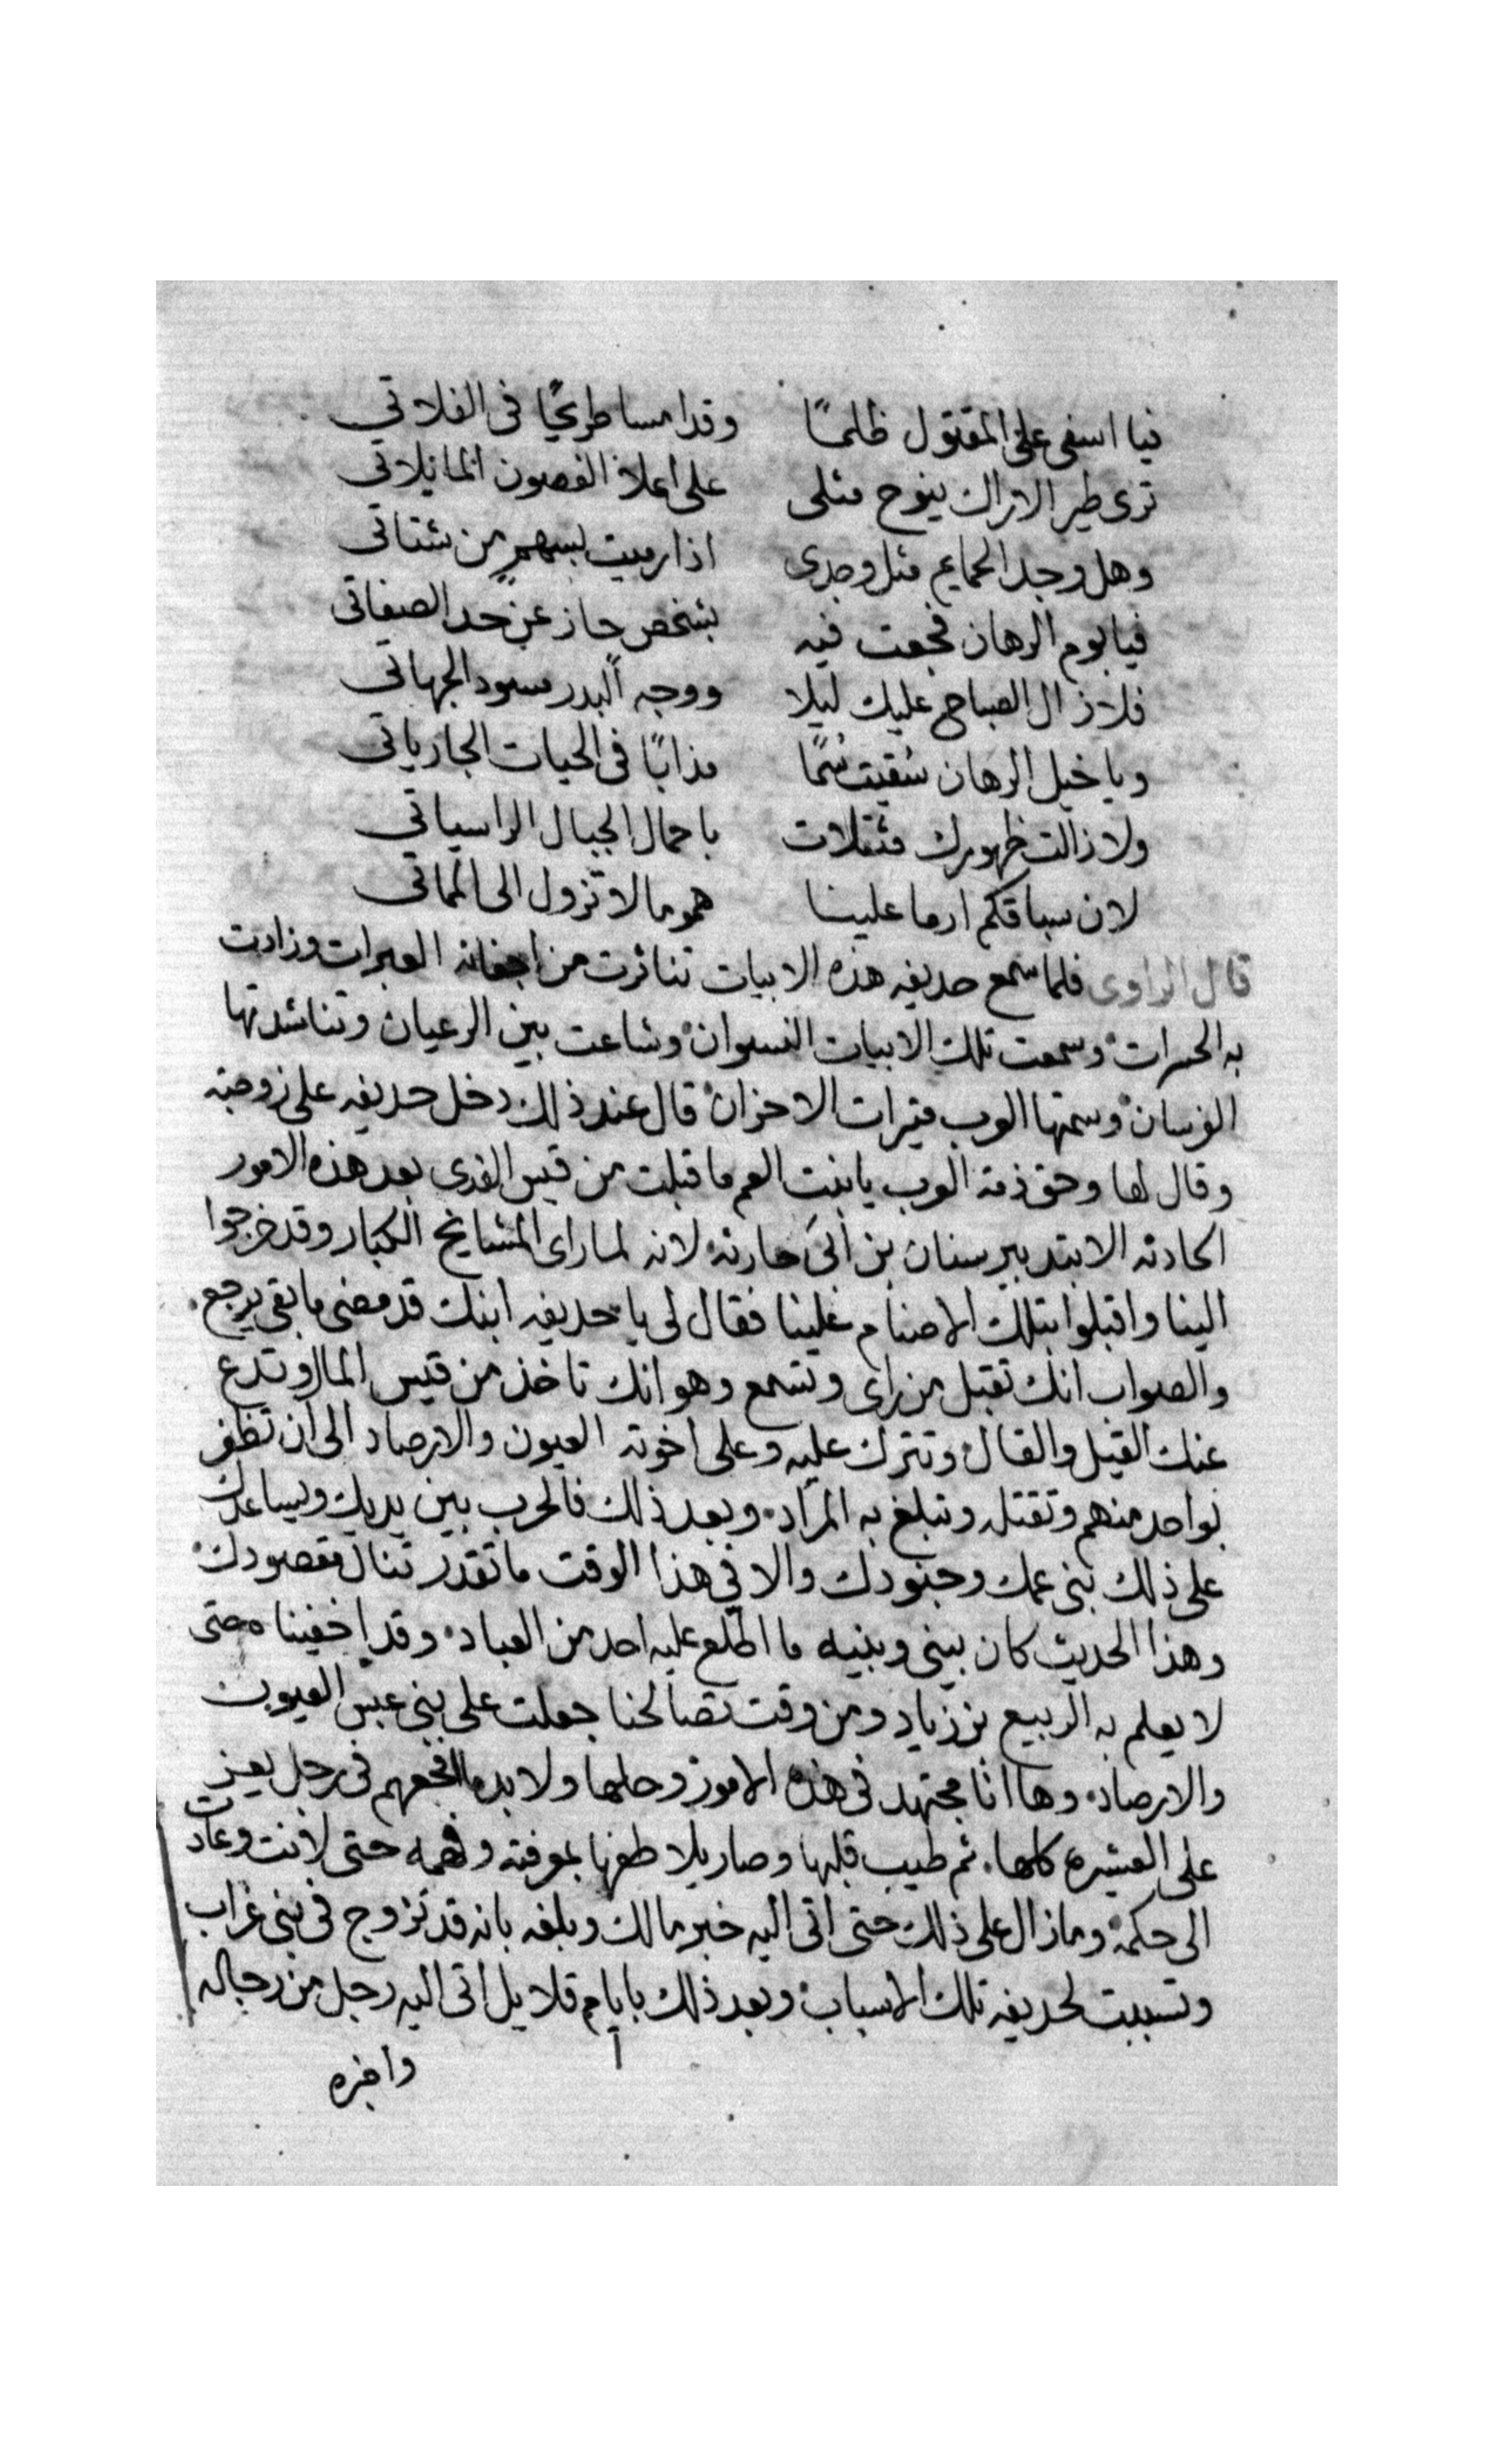 فيا اسفى على المقتول ظلمًا وقد امسا طريحًا فى الفلاتي
ترى طير الاراك ينوح مثلى على اعلا الغصون المايلاتي
وهل وجد الحمايم مثل وجدى اذا رميت بسهمٍ من شتاتي
فيا يوم الرهان فجعت فيه بشخص حاز عن حد الصفاتى
فلا زال الصباح عليك ليلا ووجه البدر مسود الجهاتي
ويا خيل الرهان سُقيت سُمًا مذابًا فى الحيات الجارياتي
ولا زالت ظهورك مثقلات باحمال الجبال الراسياتي
لان سباقكم ارما علينا هموما لا تزول الى المماتي
قال الراوى فلما سمع حديفه هذه الابيات تناثرت من اجفانه العبرات وزادت
به الحسرات وسمعت تلك الابيات النسوان وشاعت بين الرعيان وتناشدتها
الفرسان وسمتها العرب مثيرات الاحزان قال عند ذلك دخل حديفه على زوجته
وقال لها وحق ذمة العرب يا بنت العم ما قبلت من قيس الفدى بعد هذه الامور
الحادثه الا بتدبير سنان بن ابى حارثه لانه لما راى المشايخ الكبار وقد خرجوا
الينا واقبلوا بتلك الاصنام علينا فقال لى يا حديفه ابنك قد مضى ما بقى يرجع
والصواب انك تقبل من راى وتسمع وهو انك تاخذ من قيس المال وتدع
عنك القيل والقال وتترك عليه وعلى اخوته العيون والارصاد الى ان تظفر
بواحد منهم وتقتله وتبلغ به المراد وبعد ذلك فالحرب بين يديك ويساعدك
على ذلك بنى عمك وجنودك والا فى هذا الوقت ما تقدر تنال مقصودك
وهذا الحديث كان بينى وبنيه ما اطلع عليه احد من العباد وقد اخفيناه حتى
لا يعلم به الربيع بن زياد ومن وقت تصالحنا جعلت على بنى عبس العيون
والارصاد وها انا مجتهد فى هذه الامور وحلها ولا بد ما افجعهم فى رجل يعز
على العشيره كلها ثم طيب قلبها وصار يلاطفها بمعرفته وفهمه حتى لانت وعادت
الى حكمه وما زال على ذلك حتى اتى اليه خبر مالك وبلغه بانه قد تزوج فى بنى غراب
وتسببت لحديفه تلك الاسباب وبعد ذلك بايام قلايل اتى اليه رجل من رجاله
واخبره